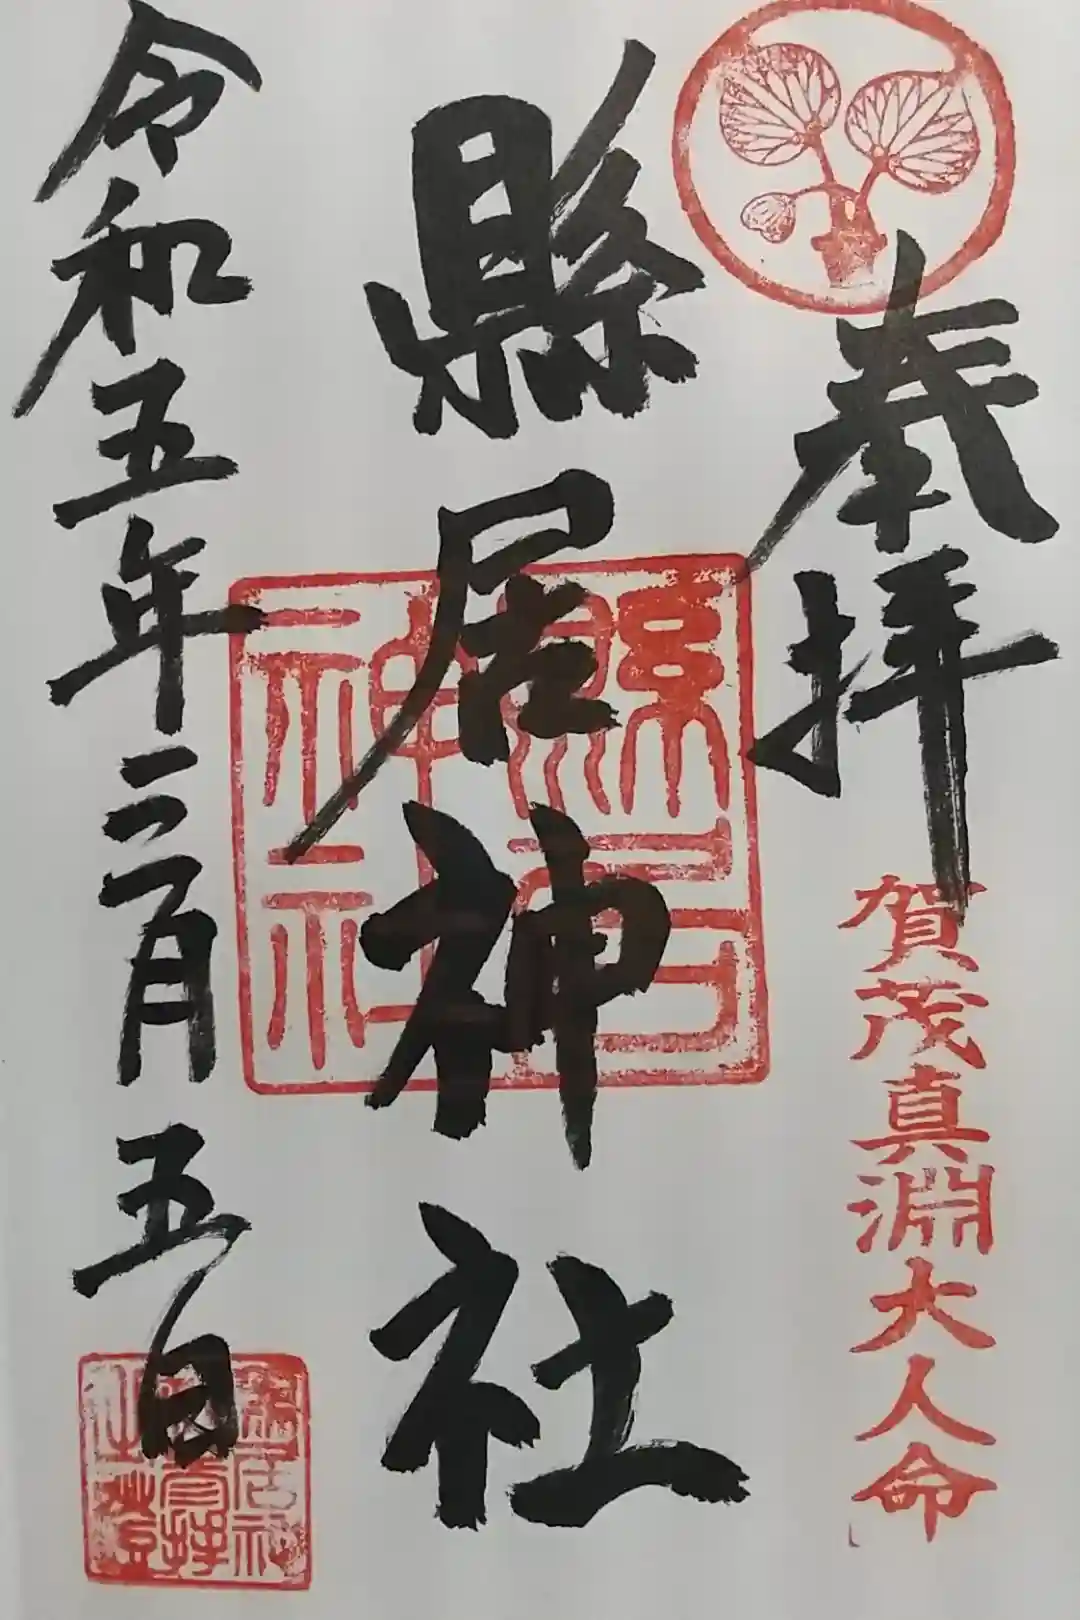 奉拝
賀茂真淵大人命
縣居神社
縣居
神社
令和五年二月五日
縣居神
社参拝
之證